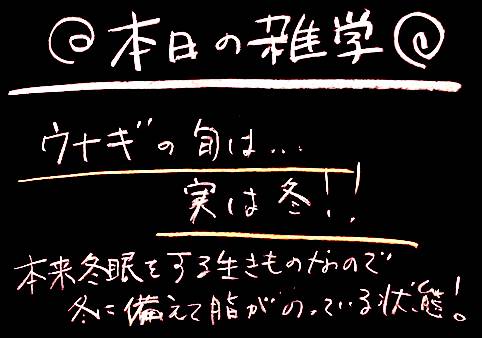 本日の雑学
ウナギの旬は...
実は冬!!
本来冬眠をする生きものなので
冬に備えて脂がのっている状態!